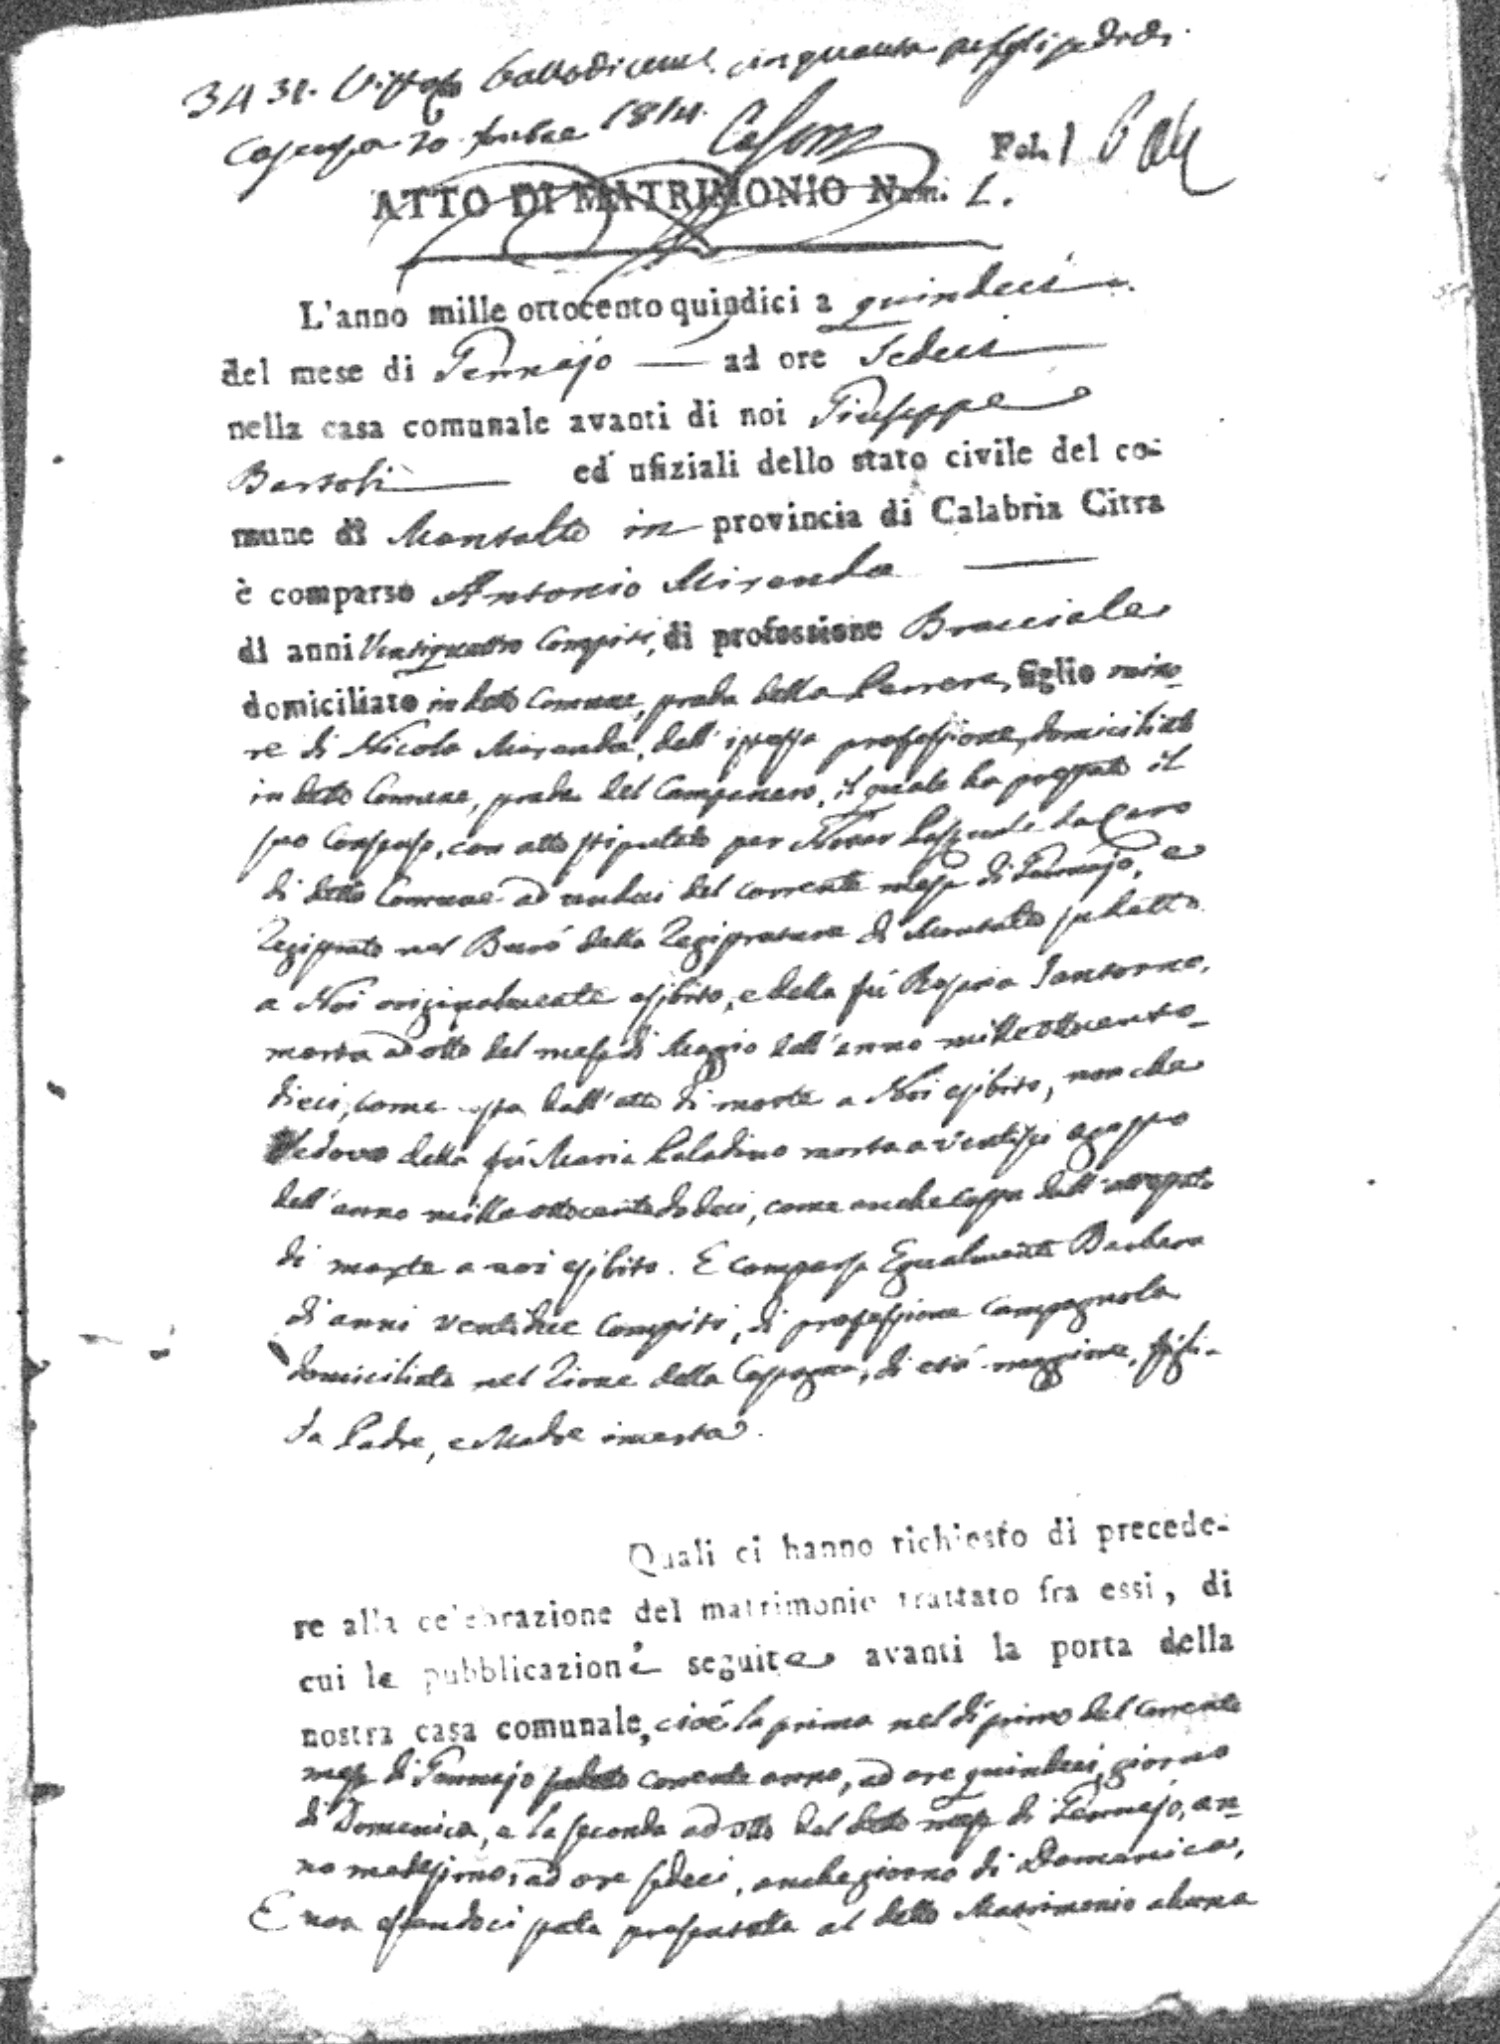 3431. Visto
Cosenza 20 1814.
Fol. 1
ATTO DI MATRIMONIO Num. 1.
L'anno mille ottocento quindici a quindeci
del mese di Gennajo ad ore sedeci
nella casa comunale avanti di noi Giuseppe
Bartoli ed ufiziali dello stato civile del co-
mune di Montalto in provincia di Calabria Citra
è comparso Antonio Miranda
di anni Ventiquattro Compiti, di professione Bracciale
domiciliato in detto Comune, strada della figlio mino-
re di Nicola Miranda, dell'istessa professione, domiciliato
in detto Comune, strada del Campanaro, il quale ha prestato il
suo Consenso, con atto stipulato per Notar
di detto Comune ad undeci del corrente mese di Gennajo, e
Registrato nel Buró della Registratura di Montalto sudetto
a Noi originalmente esibito, e della fú Rosina Santorno,
morta ad otto del mese di Maggio dell'anno milleottocento-
dieci, come costa dall'atto di morte a Noi esibito, non che
Vedovo della fú Maria Paladino morta a ventisei agosto
dell'anno mille ottocento dodeci, come anche costa dall'attestato
di morte a noi esibito. E comparsa Egualmente Barbara
di anni ventidue Compiti, di professione Campagnola
domiciliata nel Rione della di etá maggiore, figli-
da Padre, e Madre incerta.
Quali ci hanno richiesto di precede-
re alla celebrazione del matrimonio trattato fra essi, di
cui le pubblicazioni seguite avanti la porta della
nostra casa comunale, cioé la prima nel dí primo del corrente
mese di Gennajo sudetto corrente anno, ad ore quindeci, giorno
di Domenica, e la seconda ad otto del detto mese di Gennajo, an-
no medesimo, ad ore sedeci, anche giorno di Domenica,
E non essendoci stata presentata al detto Matrimonio alcuna